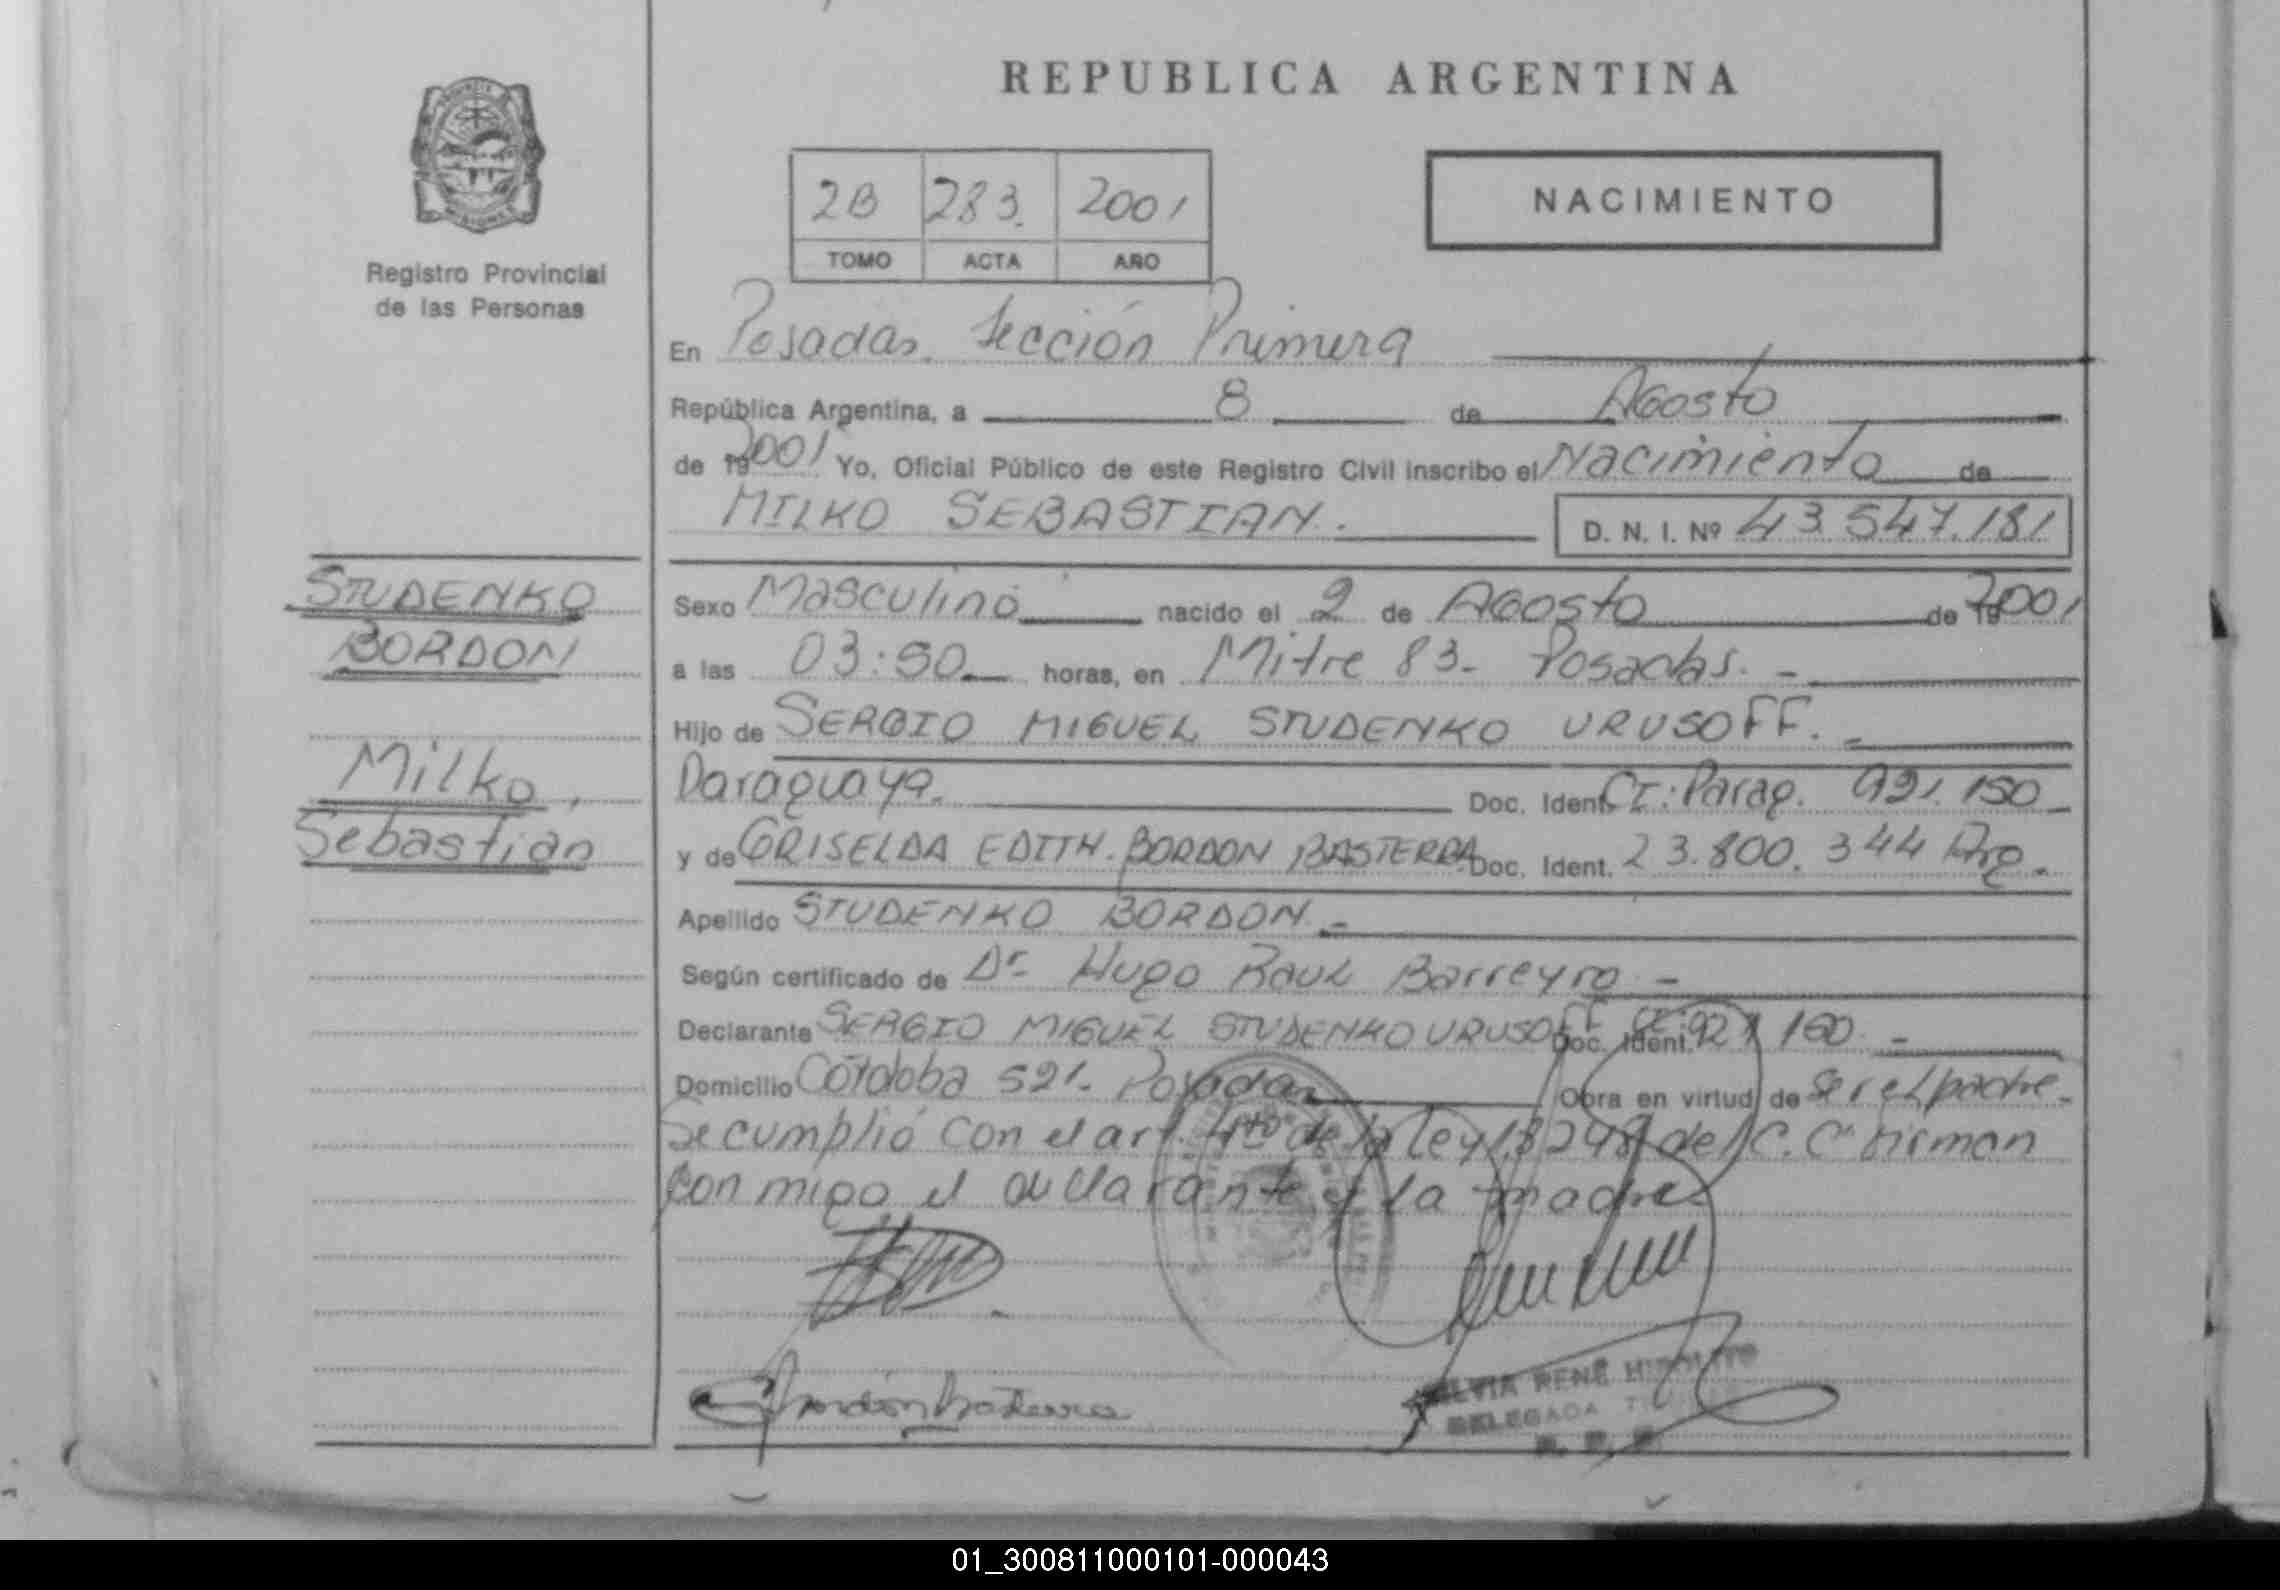 REPUBLICA ARGENTINA
Registro Provincial
de las Personas
2B 283. 2001
TOMO ACTA AÑO
NACIMIENTO
En Posadas. Sección Primera
República Argentina, a 8 de Agosto
de 192001 Yo, Oficial Público de este Registro Civil inscribo el Nacimiento de
MILKO SEBASTIAN.
D. N. I. Nº 43.547.181
STUDENKO
BORDON
Milko,
Sebastian
Sexo Masculino nacido el 2 de Agosto de 192001
a las 03:50 horas, en Mitre 83- Posadas. -
Hijo de SERGIO MIGUEL STUDENKO URUSOFF. -
Paraguaya. Doc. Ident. CI: Parag. 921.150-
y de GRISELDA EDITH. BORDON BASTERRA Doc. Ident. 23.800.344 Arg.-
Apellido STUDENKO BORDON. -
Según certificado de Dr. Hugo Raul Barreyro -
Declarante SERGIO MIGUEL STUDENKO URUSOFF Doc. Ident. CI: 921 150 -
Domicilio Córdoba 521. Posadas Obra en virtud de ser el padre.-
Se cumplió con el art. 4to de la Ley 18248 del C.C firman
con migo el declarante y la madre-
Bordón Basterra
SILVIA RENÉ HIPOLITO
DELEGADA
01_300811000101-000043